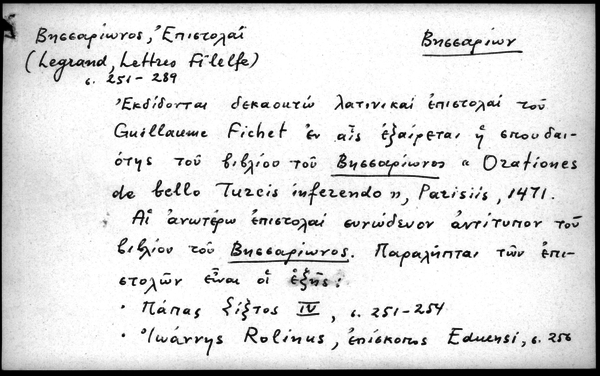 Βησσαρίωνος, Ἐπιστολαὶ
Βησσαρίων
(Legrand, Lettres Filelfe)
σ. 251-289
Ἐκδίδονται δεκαοκτώ λατινικαί ἐπιστολαί τοῦ
Guillaume Fichet ἐν αἷς ἐξαίρεται ἡ σπουδαι-
ότης τοῦ βιβλίου τοῦ Βησσαρίωνος «Orationes
de bello Turcis inferendo», Parisiis, 1471.
Αἱ ἀνωτέρω ἐπιστολαί συνώδευον ἀντίτυπον τοῦ
βιβλίου τοῦ Βησσαρίωνος. Παραλῆπται τῶν ἐπι-
στολῶν εἶναι οἱ ἑξῆς:
· Πάπας Σίξτος IV, σ. 251-254
· Ἰωάννης Rolinus, ἐπίσκοπος Eduensi, σ. 256